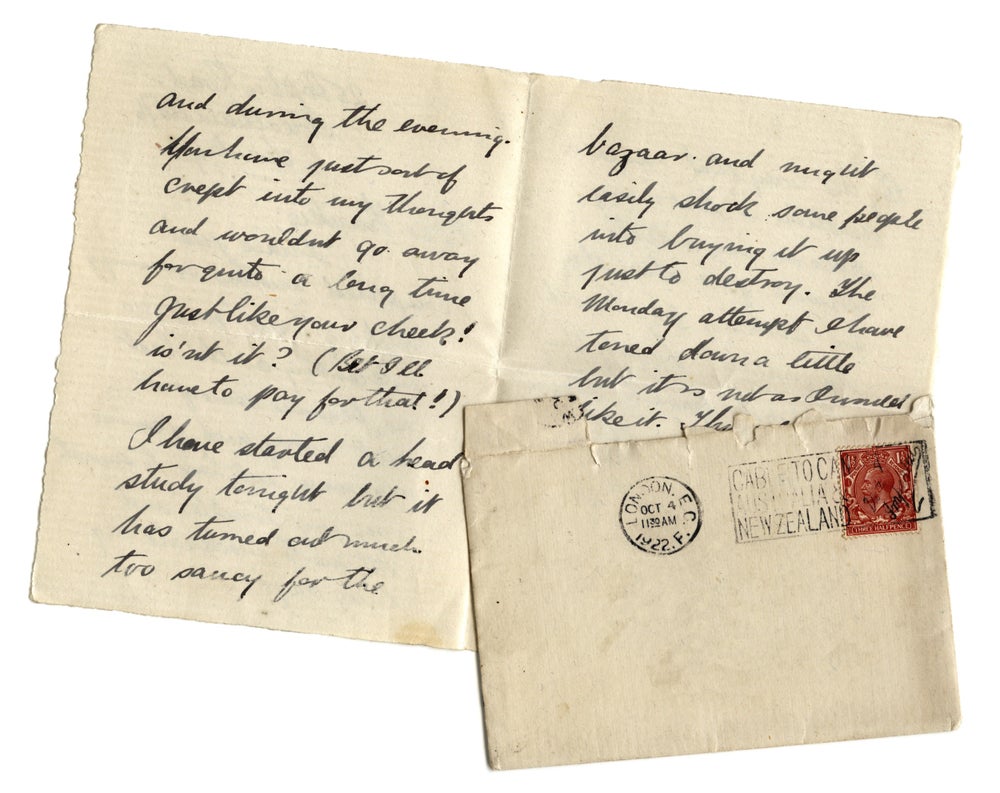 and during the evening.
You have just sort of
crept into my thoughts
and wouldnt go away
for quite a long time
Just like your cheek!
is'nt it? (Bet I'll
have to pay for that!)
I have started a head
study tonight but it
has turned out much
too saucy for the
bazaar. and might
easily shock some people
into buying it up
just to destroy. The
Monday attempt I have
toned down a little
but it is not as I
like it.
LONDON, E.C.
OCT 4
1132AM
1922. F.
CABLE TO
AUSTRALIA &
NEW ZEALAND
THREE HALF PENCE